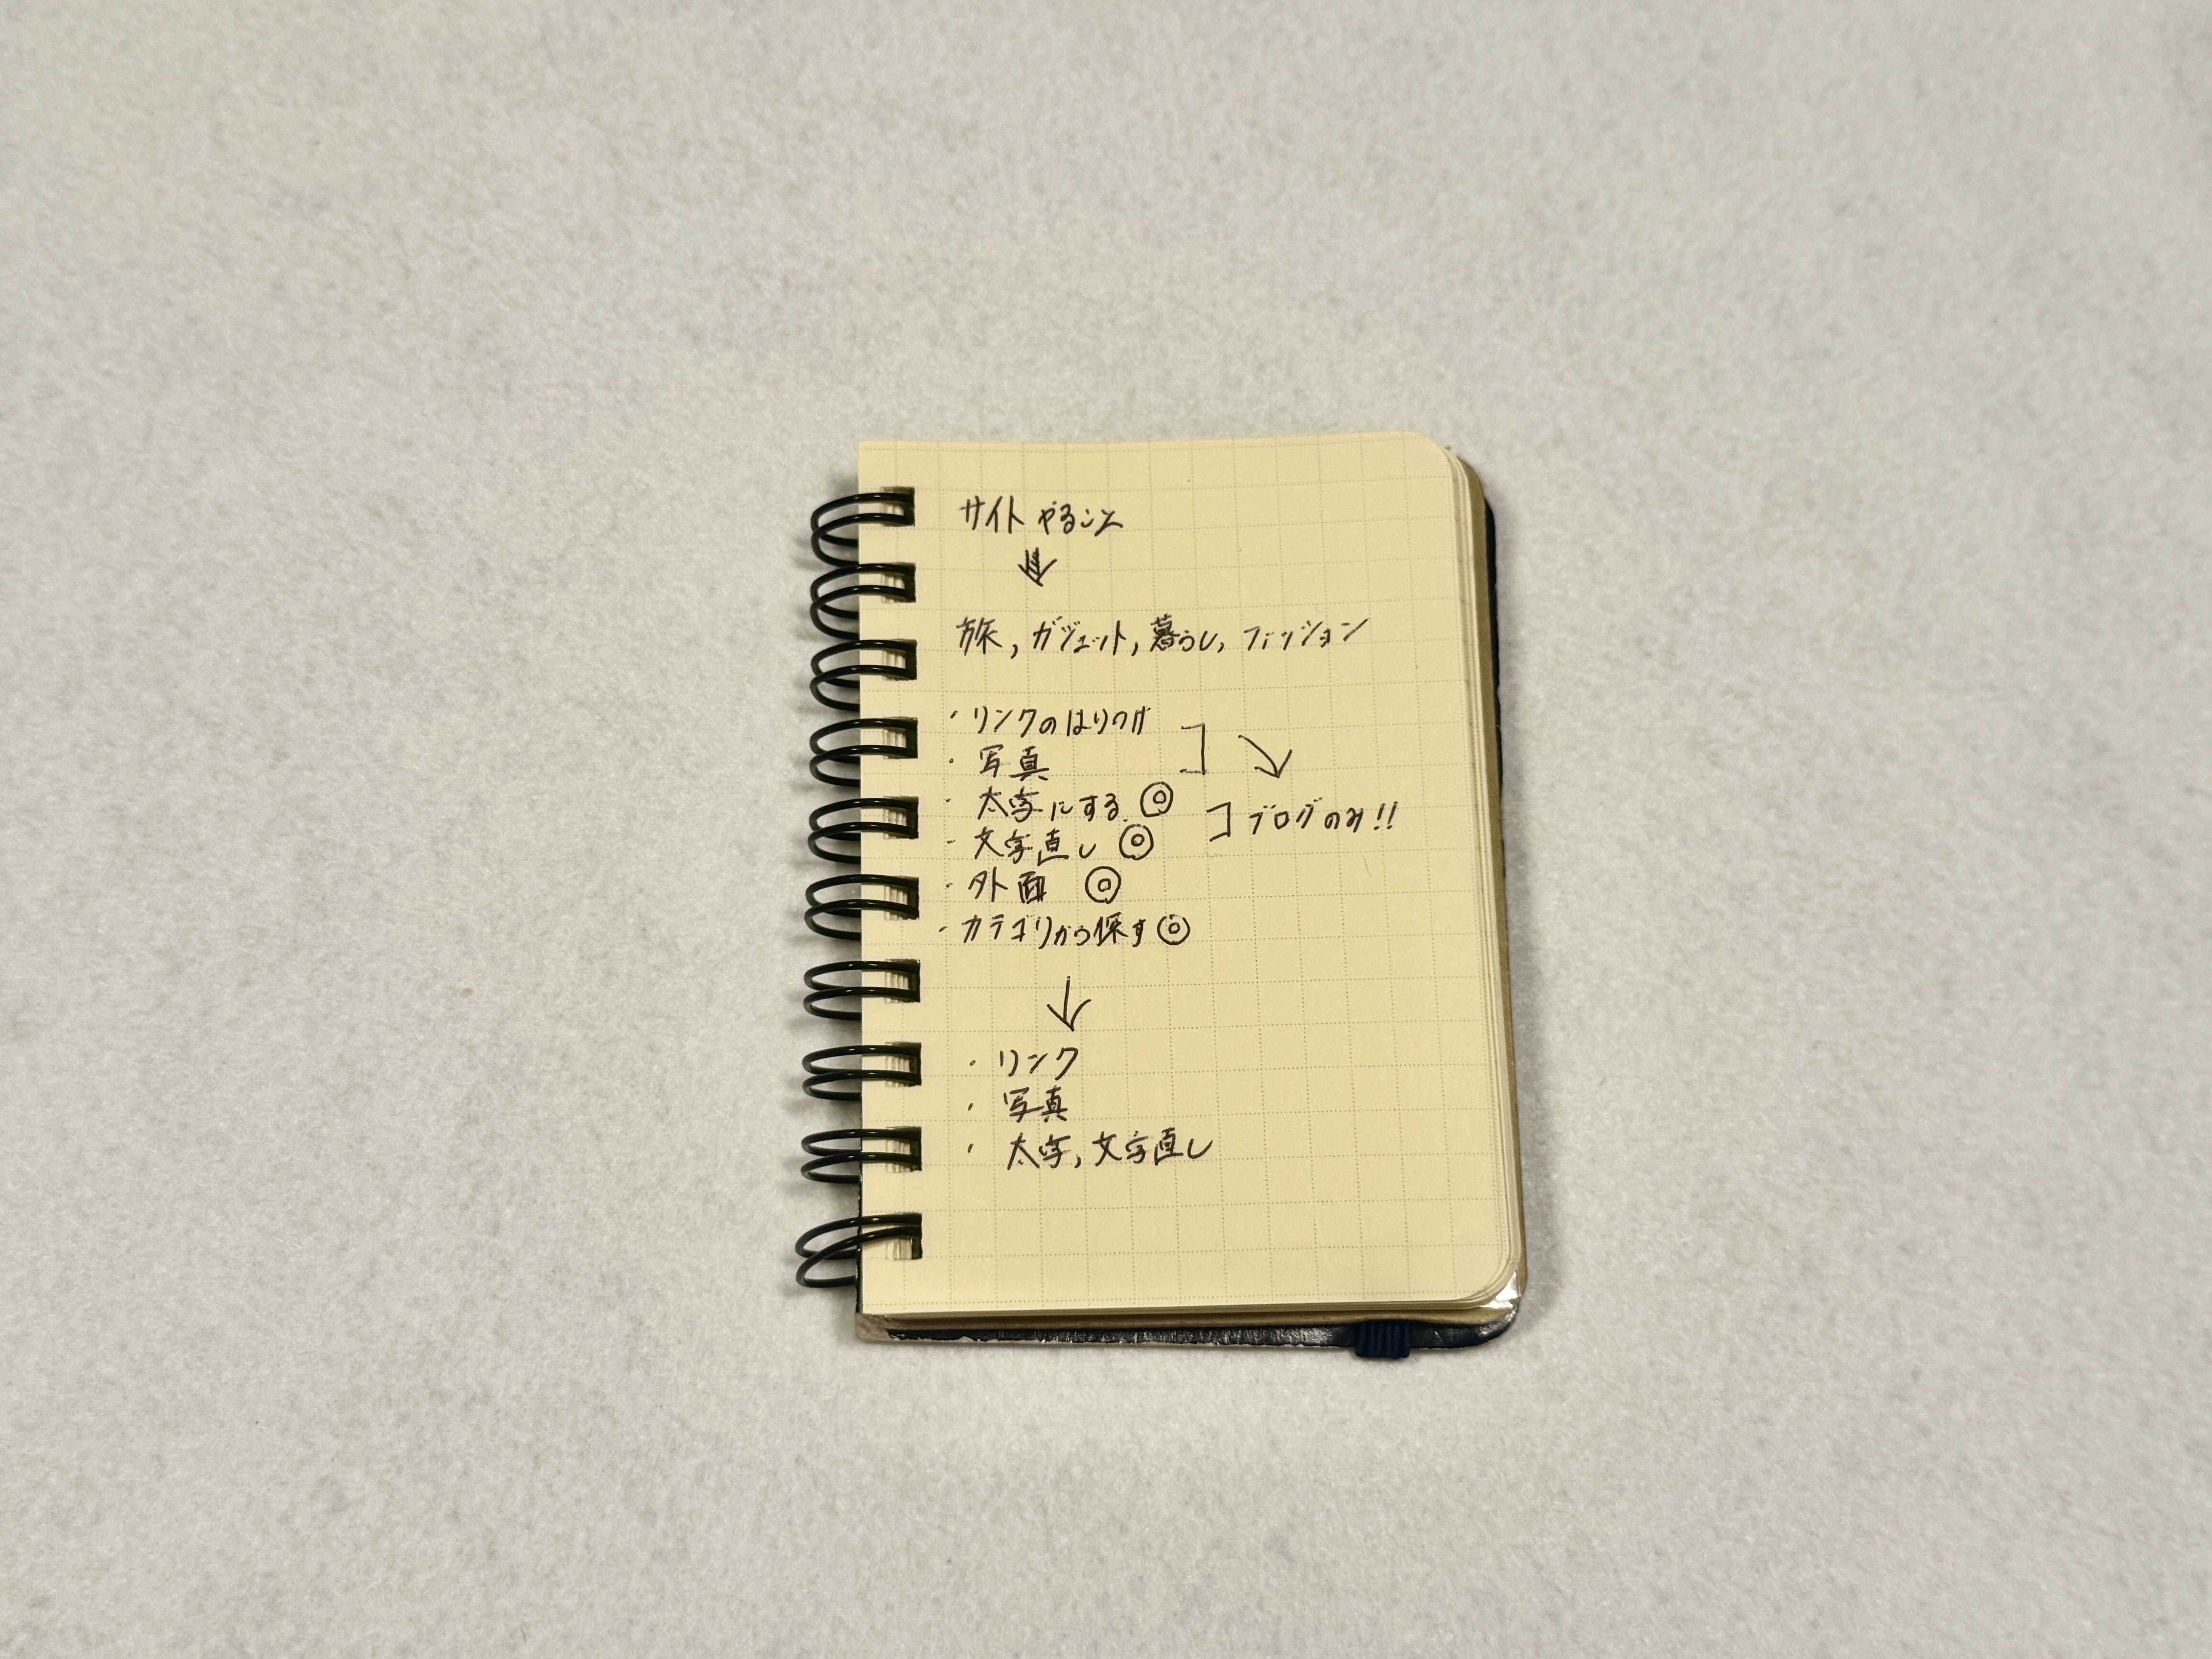 サイト やること
旅, ガジェット, 暮らし, ファッション
・リンクのはりつけ
・写真
・太字にする ◎
・文字直し ◎
ブログのみ!!
・外面 ◎
・カテゴリから探す ◎
・リンク
・写真
・太字, 文字直し